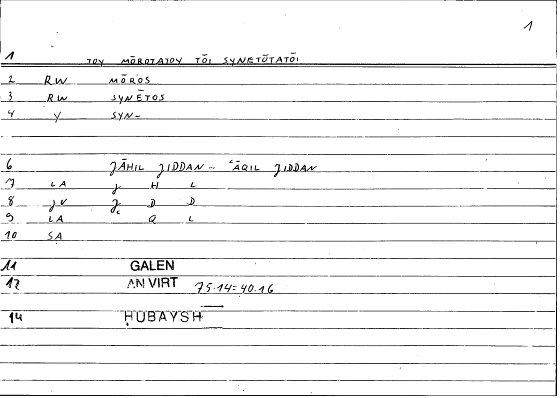 1
1 TOY MŌROTATOY TŌI SYNETŌTATŌI
2 RW MŌROS
3 RW SYNETOS
4 Y SYN-
6 ǦĀHIL ǦIDDAN - ʿĀQIL ǦIDDAN
7 LA Ǧ H L
8 JV Ǧ D D
9 LA Q L
10 SA
11 GALEN
12 AN VIRT 75.14=40.16
14 ḤUBAYSH